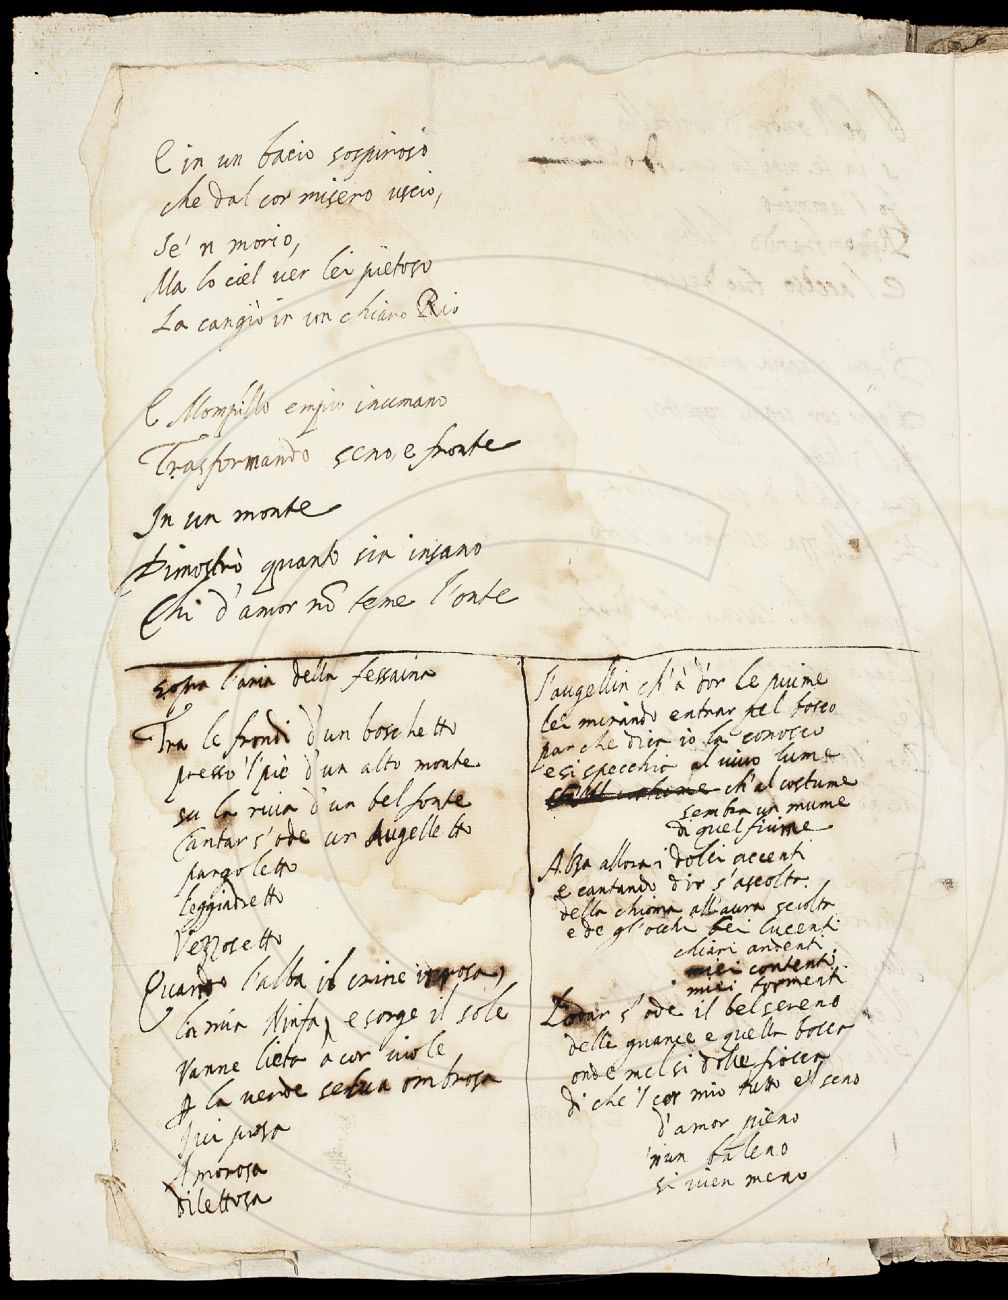 E in un bacio sospiroso
che dal cor misero uscio,
se'n morio,
Ma lo ciel ver lei pietoso
La cangiò in un chiaro Rio
E Mompillo empio inumano
Trasformando seno, e fronte
In un monte
Dimostrò quanto sia insano
Chi d'amor nõ teme l'onte
sopra l'aria della fessaina
Tra le frondi d'un boschetto
presso 'l piè d'un alto monte
su la riva d'un bel fonte
Cantar s'ode un Augelletto
pargoletto
leggiadretto
Vezzosetto
Quando l'alba il crine
la mia Ninfa, e sorge il sole
Vanne lieta à cor viole
la verde selva ombrosa
Ivi posa
Amorosa
dilettosa
l'augellin ch'à d'or le piume
lei mirando entrar nel bosco
par che dica io la conosco
e si specchia al vivo lume
ch'al costume
sembra un nume
di quel fiume
Alza allora i dolci accenti
e cantando dir s'ascolta
della chioma all'aura sciolta
e de gl'occhi bei lucenti
chiari ardenti
miei contenti
miei tormenti
Lodar s'ode il bel sereno
delle guance e quella bocca
onde mel sì dolce fiocca
di che 'l cor mio tutto e 'l seno
d'amor pieno
'n un baleno
si vien meno